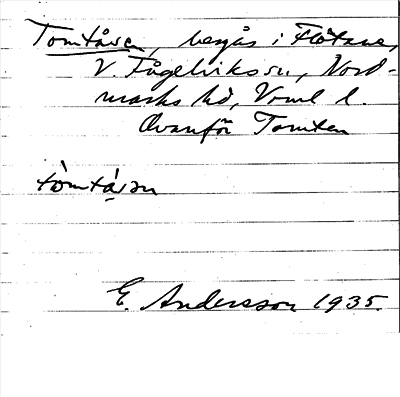 Tomtåsen, bergås i Flötane,
V. Fågelviks sn, Nord-
marks hd, Vrml l.
Ovanför Tomten
tòmtå̀sən
E. Andersson 1935.